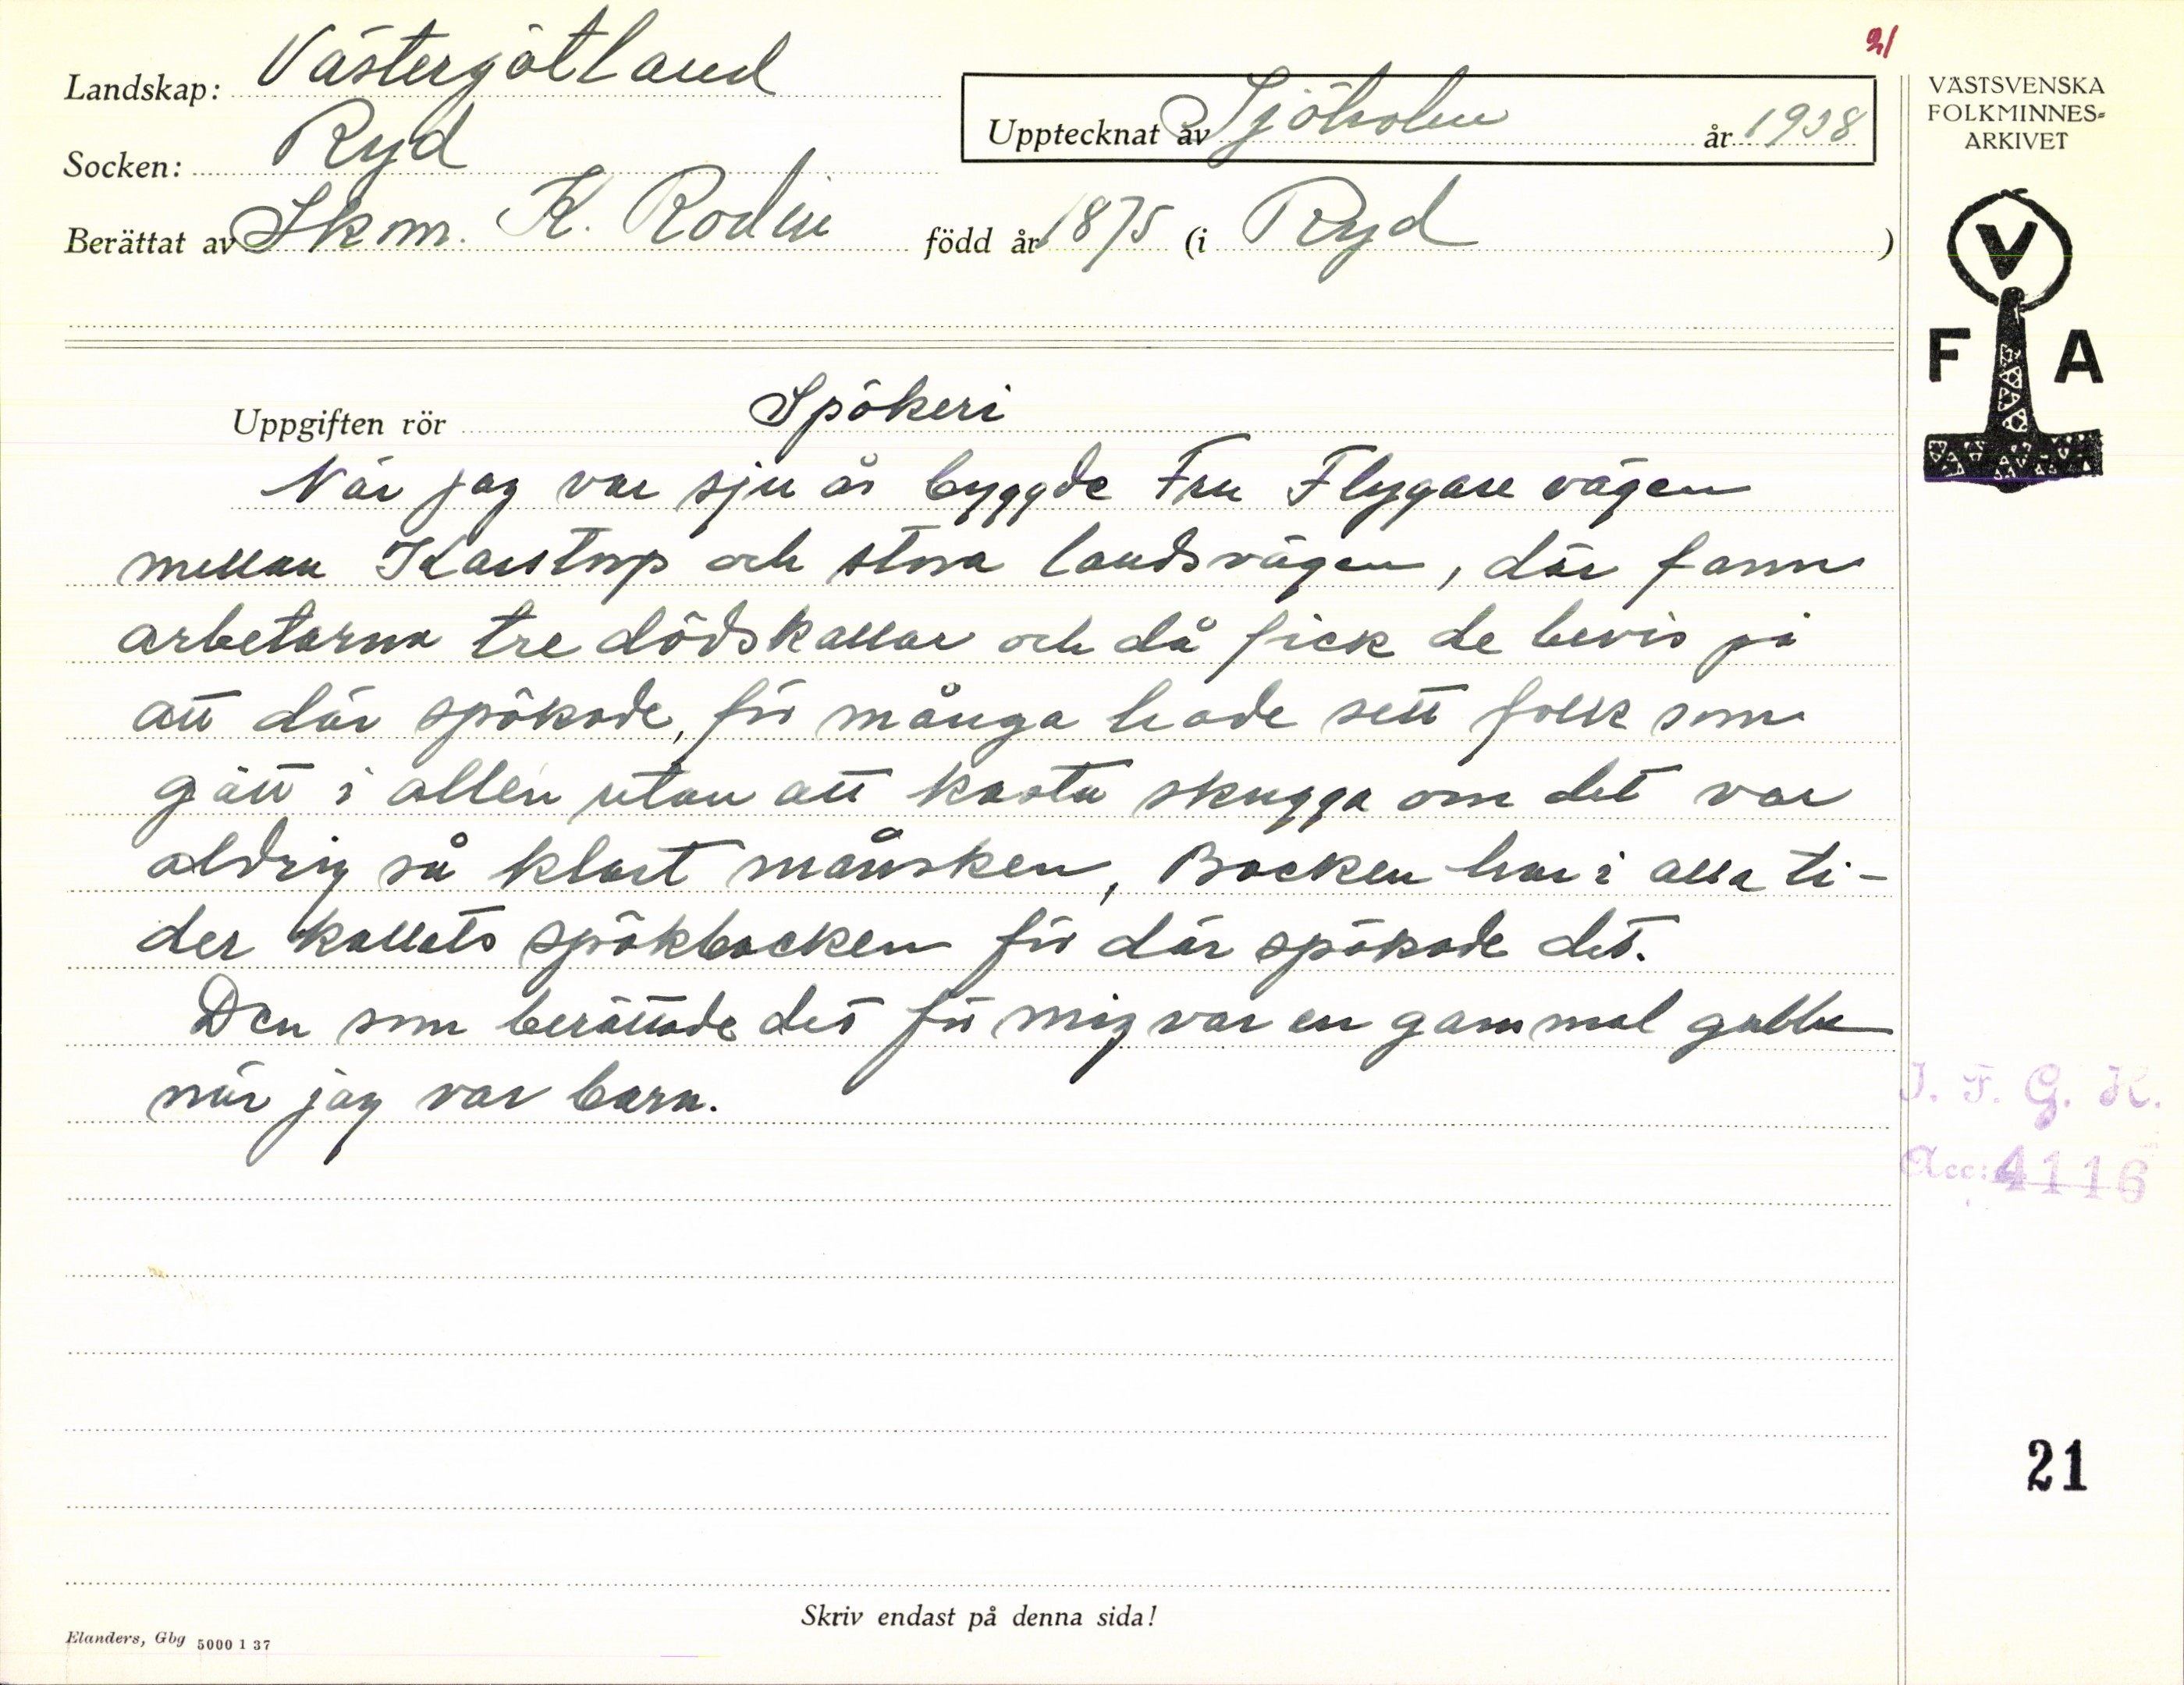 21
Landskap: Västergötland
Upptecknat av Sjöholm år 1938
Socken: Ryd
Berättat av Skm. K. Rodin född år 1875 (i Ryd )
VÄSTSVENSKA
FOLKMINNES=
ARKIVET
V
F A
Uppgiften rör Spökeri
När jag var sju år byggde Fru Flygare vägen
mellan Karstorp och stora landsvägen, där fann
arbetarna tre dödskallar och då fick de bevis på
att där spökade, för många hade sett folk som
gått i allén utan att kasta skugga om det var
aldrig så klart månsken, Backen har i alla ti-
der kallats spökbacken för där spökade det.
Den som berättade det för mig var en gammal gubbe
när jag var barn.
I. F. G. H.
Acc: 4116
21
Skriv endast på denna sida!
Elanders, Gbg 5000 1 37